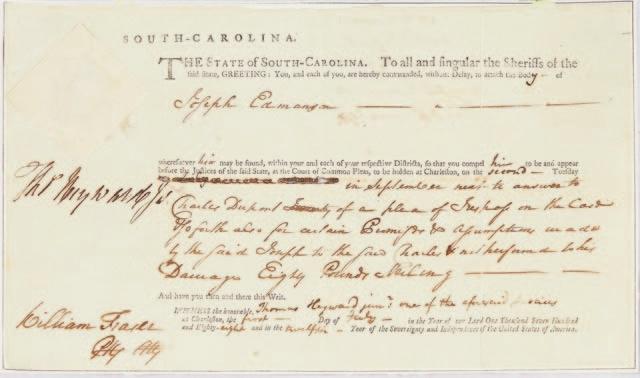 SOUTH-CAROLINA.
THE STATE of SOUTH-CAROLINA. To all and singular the Sheriffs of the
said State, GREETING: You, and each of you, are hereby commanded, without Delay, to attach the Body of
Joseph Edmanson
wheresoever him may be found, within your and each of your respective Districts, so that you compel him to be and appear
before the Justices of the said State, at the Court of Common Pleas, to be holden at Charleston, on the second Tuesday
in September next to answer to
Thos Heyward Jr
Charles Dupont of a plea of Trespass on the Case
& so forth also for certain Promises & Assumptions made
by the said Joseph to the said Charles & not performed to his
Damage Eighty Pounds Sterling
And have you then and there this Writ.
WITNESS the honorable, Thomas Heyward junr one of the aforesaid Justices
at Charleston, the first Day of July in the Year of our Lord One Thousand Seven Hundred
and Eighty-eight and in the twelfth Year of the Sovereignty and Independence of the United States of America.
William Fraser